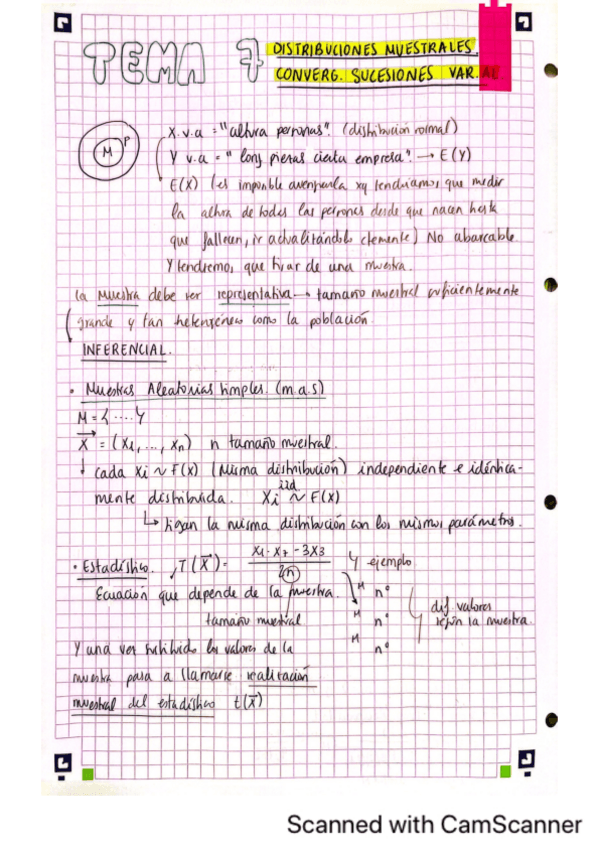 TEMA 7 DISTRIBUCIONES MUESTRALES,
CONVERG. SUCESIONES VAR. AL
M P
X v.a = "altura personas". (distribución normal)
Y v.a = " long piezas cierta empresa". → E(Y)
E(X) (es imposible averiguarla xq tendríamos que medir
la altura de todas las personas desde que nacen hasta
que fallecen, ir actualizándolo ctemente) No abarcable
Y tendremos que tirar de una muestra.
la muestra debe ser representativa → tamaño muestral suficientemente
grande y tan heterogéneo como la población.
INFERENCIAL.
• Muestras Aleatorias Simples. (m.a.s)
M = { .... }
X = (X1, ..., Xn) n tamaño muestral.
cada Xi ~ F(x) (Misma distribución) independiente e idéntica-
mente distribuida. Xi iid ~ F(x)
↳ Sigan la misma distribución con los mismos parámetros.
• Estadístico. T(X) = X1 · X7 - 3X3 / 2n } ejemplo
Ecuación que depende de la muestra. M nº
tamaño muestral M nº dif. valores
según la muestra.
Y una vez sustituido los valores de la M nº
muestra pasa a llamarse realización
muestral del estadístico t(x)
Scanned with CamScanner